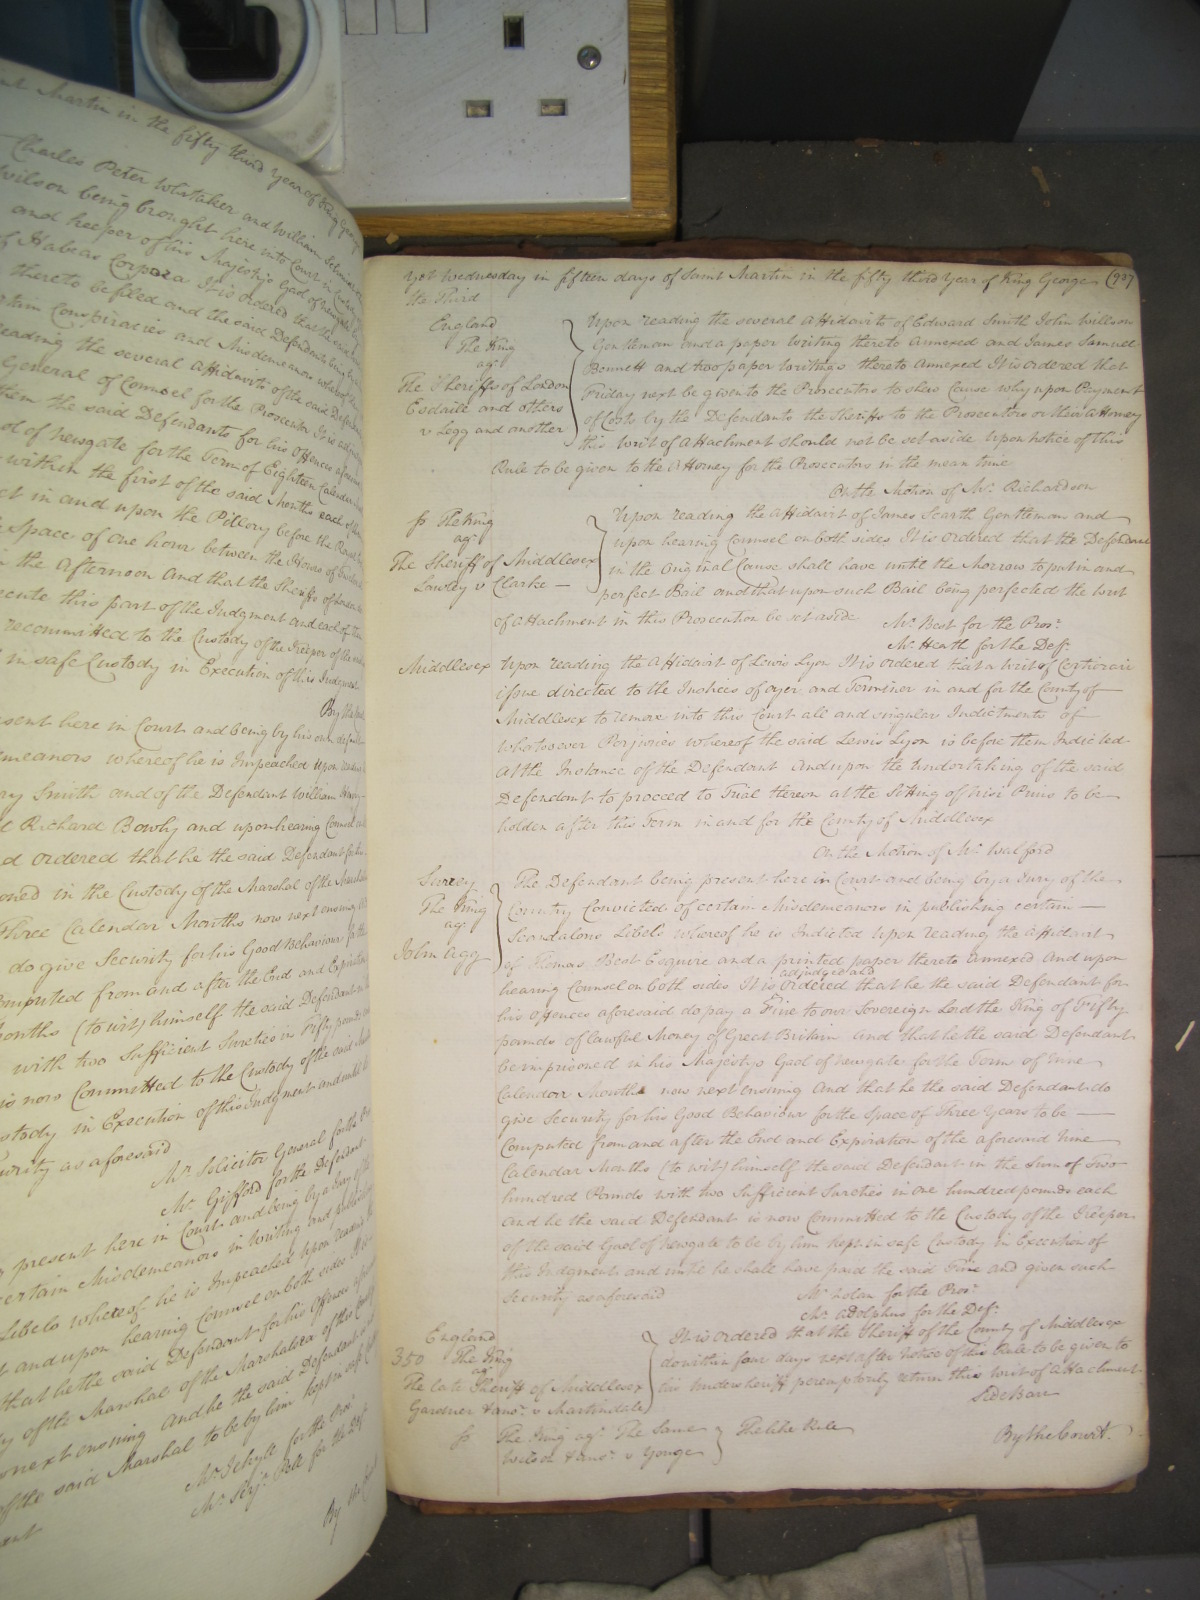 Martin in the fifty third year of King George
Charles Peter Whitaker and William
Wilson being brought here into Court in Custody
and keeper of his Majestys Gaol of Newgate
of Habeas Corpora It is ordered that the
thereto be filed and the said Defendants being
certain Conspiracies and Misdemeanors whereof
reading the several Affidavits of the said Defendants
General of Counsel for the Prosecutor It is
them the said Defendants for his Offences aforesaid
of Newgate for the Term of Eighteen Calendar
within the first of the said Months each
set in and upon the Pillory before the Royal
Space of one hour between the Hours of
in the Afternoon And that the Sheriffs of London
execute this part of the Judgment and each of them
recommitted to the Custody of the Keeper of the said
in safe Custody in Execution of this Judgment
By the
present here in Court and being by his own
misdemeanors whereof he is Impeached Upon
Smith and of the Defendant William
Richard Bowly and upon hearing Counsel
ordered that he the said Defendant for the
in the Custody of the Marshal of the
Three Calendar Months now next ensuing
do give Security for his Good Behaviour for
Computed from and after the End and Expiration
Months (to wit) himself the said Defendant in
with two Sufficient Sureties in Fifty pounds
is now Committed to the Custody of the said
Custody in Execution of this Judgment and until
Security as aforesaid
Mr. Solicitor General for the
Mr. Gifford for the Defendant
present here in Court and being by a Jury of the
certain Misdemeanors in Writing and publishing
Libels whereof he is Impeached upon reading
and upon hearing Counsel on both sides It is
that he the said Defendant for his Offences
of the Marshal of the Marshalsea of this Court
next ensuing And he the said Defendant is
of the said Marshal to be by him kept in safe
Mr. Jekyll for the Pros.
Mr. Serjt. Pell for the Def.
By the Court
Yet Wednesday in fifteen days of Saint Martin in the fifty third Year of King George (937
the Third
England
The King
agt
The Sheriffs of London
Esdaile and others
v Legg and another
Upon reading the several Affidavits of Edward Smith John Willson
Gentleman and a paper Writing thereto Annexed and James Samuel
Bennett and two paper Writings thereto Annexed It is ordered that
Friday next be given to the Prosecutors to shew Cause why upon Payment
of Costs by the Defendants the Sheriffs to the Prosecutors or their Attorney
this Writ of Attachment should not be set aside upon Notice of this
Rule to be given to the Attorney for the Prosecutors in the mean time
On the Motion of Mr. Richardson
The King
agt
The Sheriff of Middlesex
Lawley v Clarke —
Upon reading the Affidavit of James Scarth Gentleman and
upon hearing Counsel on both sides It is ordered that the Defendant
in the Original Cause shall have until the Morrow to put in and
perfect Bail and that upon such Bail being perfected the Writ
of Attachment in this Prosecution be set aside
Mr. Best for the Pros:
Mr. Heath for the Def:
Middlesex Upon reading the Affidavit of Lewis Lyon It is ordered that a Writ of Certiorari
issue directed to the Justices of Oyer and Terminer in and for the County of
Middlesex to remove into this Court all and singular Indictments of
whatsoever Perjuries whereof the said Lewis Lyon is before them Indicted
At the Instance of the Defendant And upon the Undertaking of the said
Defendant to proceed to Trial thereon at the Sitting of Nisi Prius to be
holden after this Term in and for the County of Middlesex
On the Motion of Mr. Walford
Surrey
The King
agt
John Agg
The Defendant being present here in Court and being by a Jury of the
Country Convicted of certain Misdemeanors in publishing certain —
Scandalous Libels whereof he is Indicted Upon reading the Affidavit
of Thomas Best Esquire and a printed paper thereto annexed And upon
adjudged and
hearing Counsel on both sides It is Ordered that he the said Defendant for
his offences aforesaid do pay a Fine to our Sovereign Lord the King of Fifty
pounds of lawful Money of Great Britain And that he the said Defendant
be imprisoned in his Majestys Gaol of Newgate for the Term of Nine
Calendar Months now next ensuing And that he the said Defendant do
give Security for his Good Behaviour for the Space of Three Years to be —
Computed from and after the End and Expiration of the aforesaid Nine
Calendar Months (to wit) himself the said Defendant in the Sum of Two
hundred Pounds with two Sufficient Sureties in One hundred pounds each
And he the said Defendant is now Committed to the Custody of the Keeper
of the said Gaol of Newgate to be by him kept in safe Custody in Execution of
this Judgment and until he shall have paid the said Fine and given such
Security as aforesaid
Mr. Nolan for the Pros.
Mr. Adolphus for the Def:
England
350 The King
agt
The late Sheriff of Middlesex
Gardner & anor. v Martindale
It is ordered that the Sheriff of the County of Middlesex
do within four days next after Notice of this Rule to be given to
his Undersheriff peremptorily return this Writ of Attachment
Side Bar
The King agt. The Same
Wilson & anor. v Yonge
The like Rule
By the Court.